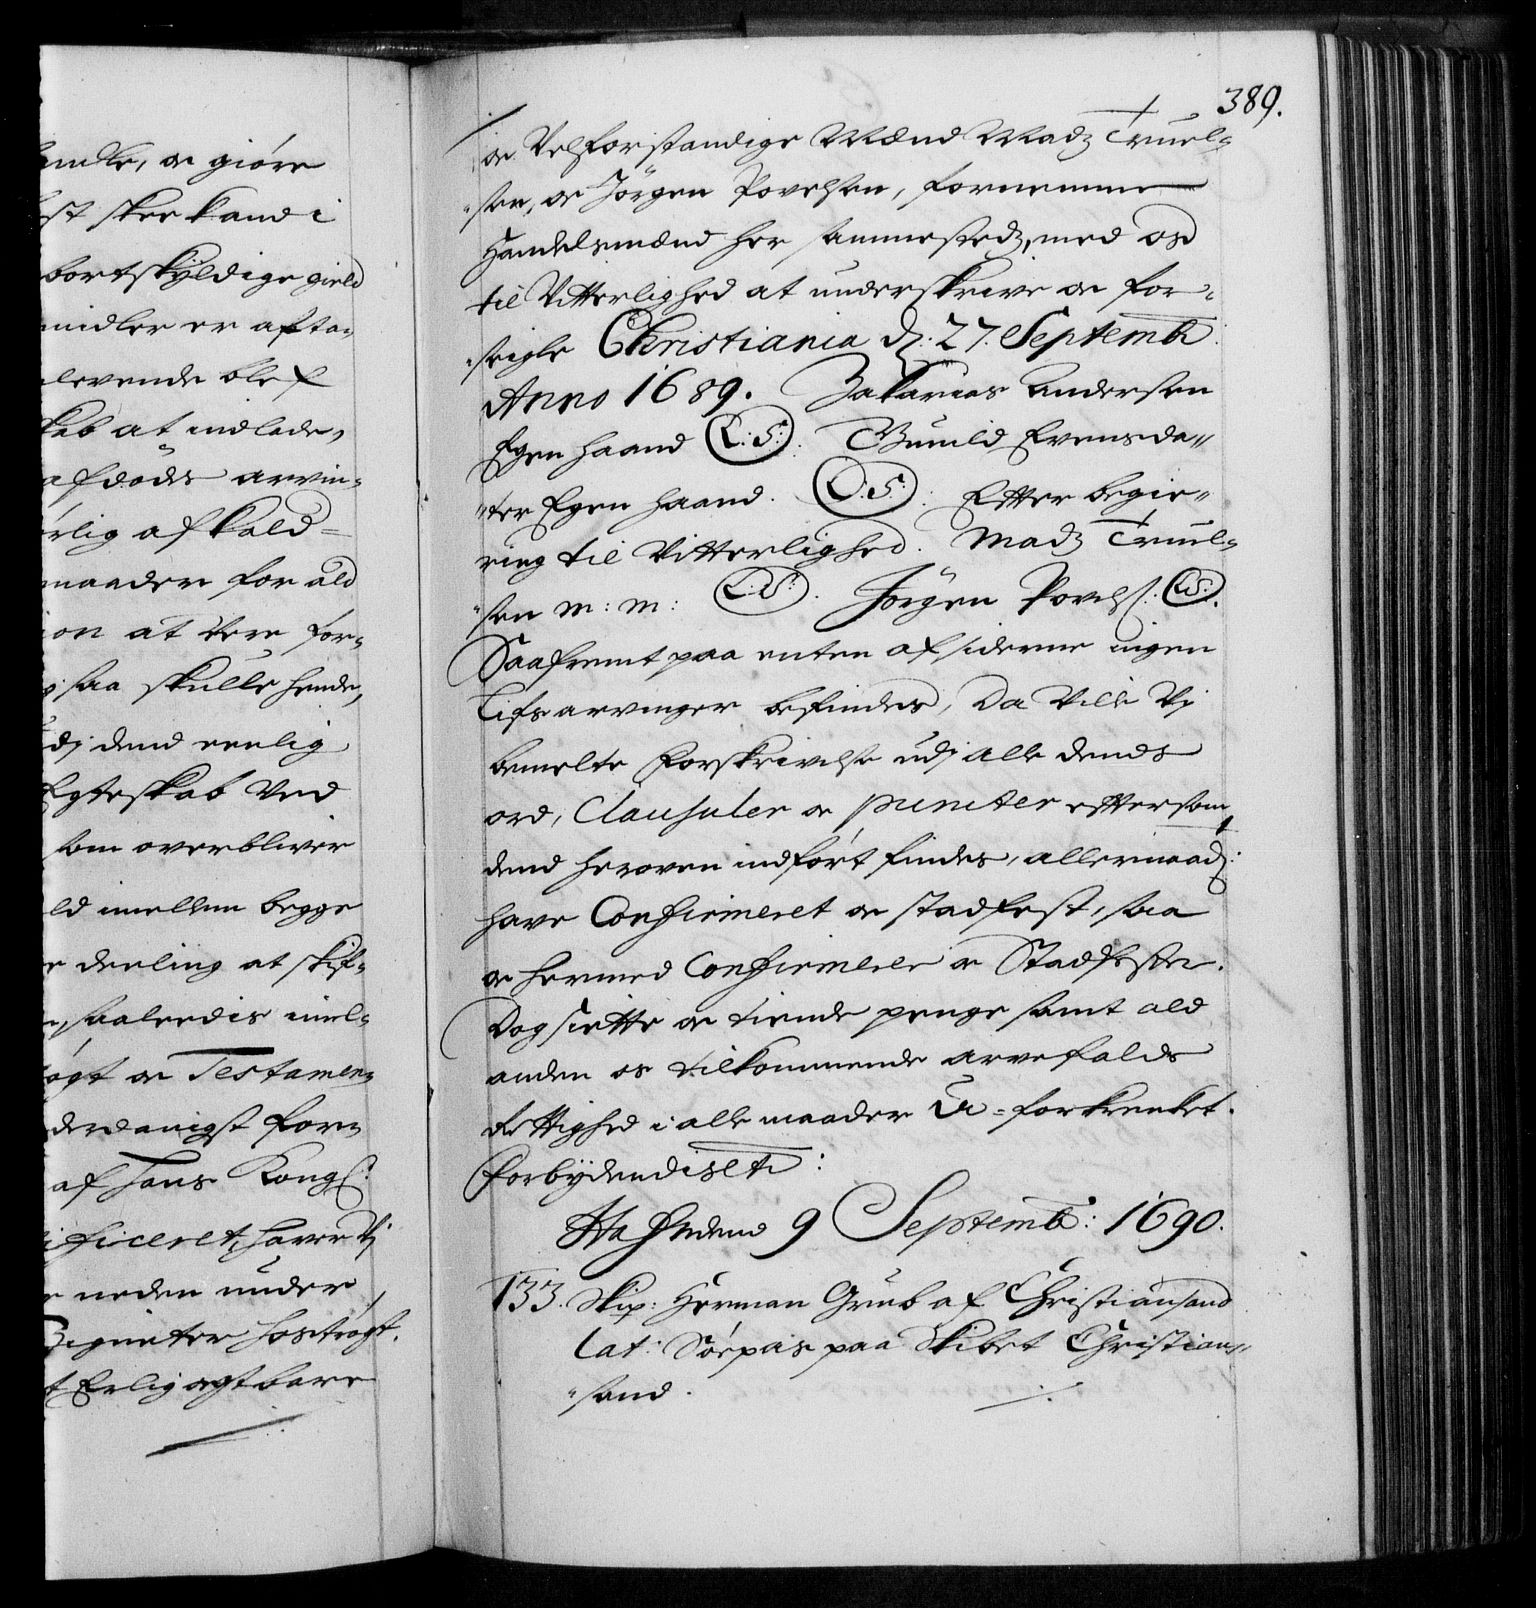 emcke, oc giöre
st skee kand i
bortskyldige gield
midler er afta-
levende blef
skab at indlade,
afdödes arvin-
rlig afkald-
maader for ald
ion at vere for-
saa skulle hende,
dj dend eenlig
Egteskab ved
som overbliver
ld imellem begge
e deeling at skif-
saaleedis imel-
ögt oc Testamen-
derdanigst for-
af Hans Kongl:
ficeret, haver Vj
neden under
Signeter hoströgt.
t Erlig agtbare
389.
oc Velforstandige Mænd Madz Truel-
sen, oc Jörgen Povelsen, fornemme
Handelsmænd her sammesteds, med os
til Vitterlighed at underskrive oc for-
seigle Christiania dj: 27. Septemb:
Anno 1689. Zakarias Andersen
Egen haand (L:S:). Gunild Evensda-
ter Egen haand. (L:S:). Efter begie-
ring til Vitterlighed. Madz Truel-
sen m: m: (L:S:). Jörgen Povels: (L:S:).
Saafremt paa enten af siderne ingen
Lifs arvinger befindes, Da Ville Vj
bemelte Forskrivelse udj alle dends
ord, Clausuler oc puncter eftersom
dend heroven indfört findes, allermaad:
have Confirmeret oc stadfest, saa
oc hermed Confirmerer oc Stadfester.
Dog siette oc tiende penge samt ald
anden os tilkommende arvefalds
Rettighed i alle maader U-forkrenket.
Forbydendis etc:
Hafn dend 9 Septemb: 1690.
133. Skip: Herman Grub af Christiansand
Lat: Söepas paa Skibet Christian-
sand.